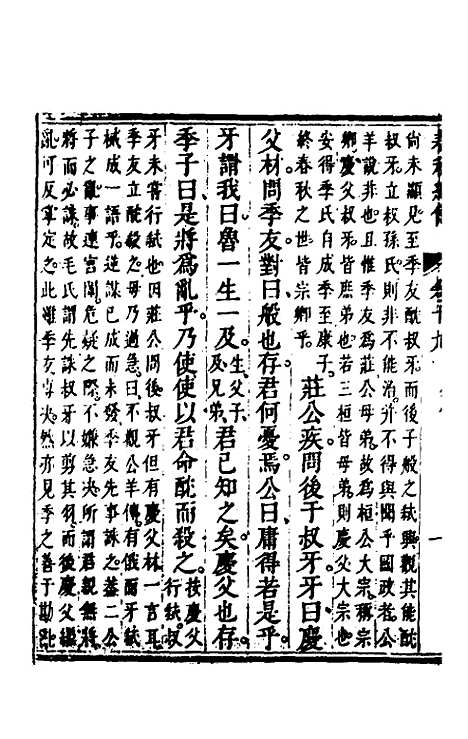 尚未顯見至季友酖叔牙而後子般之弑與觀其能酖
叔牙立叔孫氏則非不能治并不得與聞乎國政者公
羊說非也且惟季友為莊公母弟故為桓公大宗稱宗
卿慶父叔牙皆庶弟也若三桓皆母弟則慶父大宗也
安得季氏自成季至康子
終春秋之世皆宗卿乎
莊公疾問後于叔牙牙曰慶
父材問季友對曰般也存君何憂焉公曰庸得若是乎
牙謂我曰魯一生一及
生父子
及兄弟
君已知之矣慶父也存
季子曰是將為亂乎乃使使以君命酖而殺之
按慶父
行弑叔
牙未嘗行弑也因莊公問後叔牙但有慶父材一言耳
季友立酖殺之毋乃過急曰不觀公羊傳有俄而牙弑
械成一語乎逆謀已成而未發季友先事誅之蓋二公
子之亂事連宮闈危疑之際不嫌急決所謂君親無將
將而必誅故毛氏謂先誅叔牙以剪其羽而後慶父繼
亂可反掌定之此雖季友專決然亦見季之善于勘